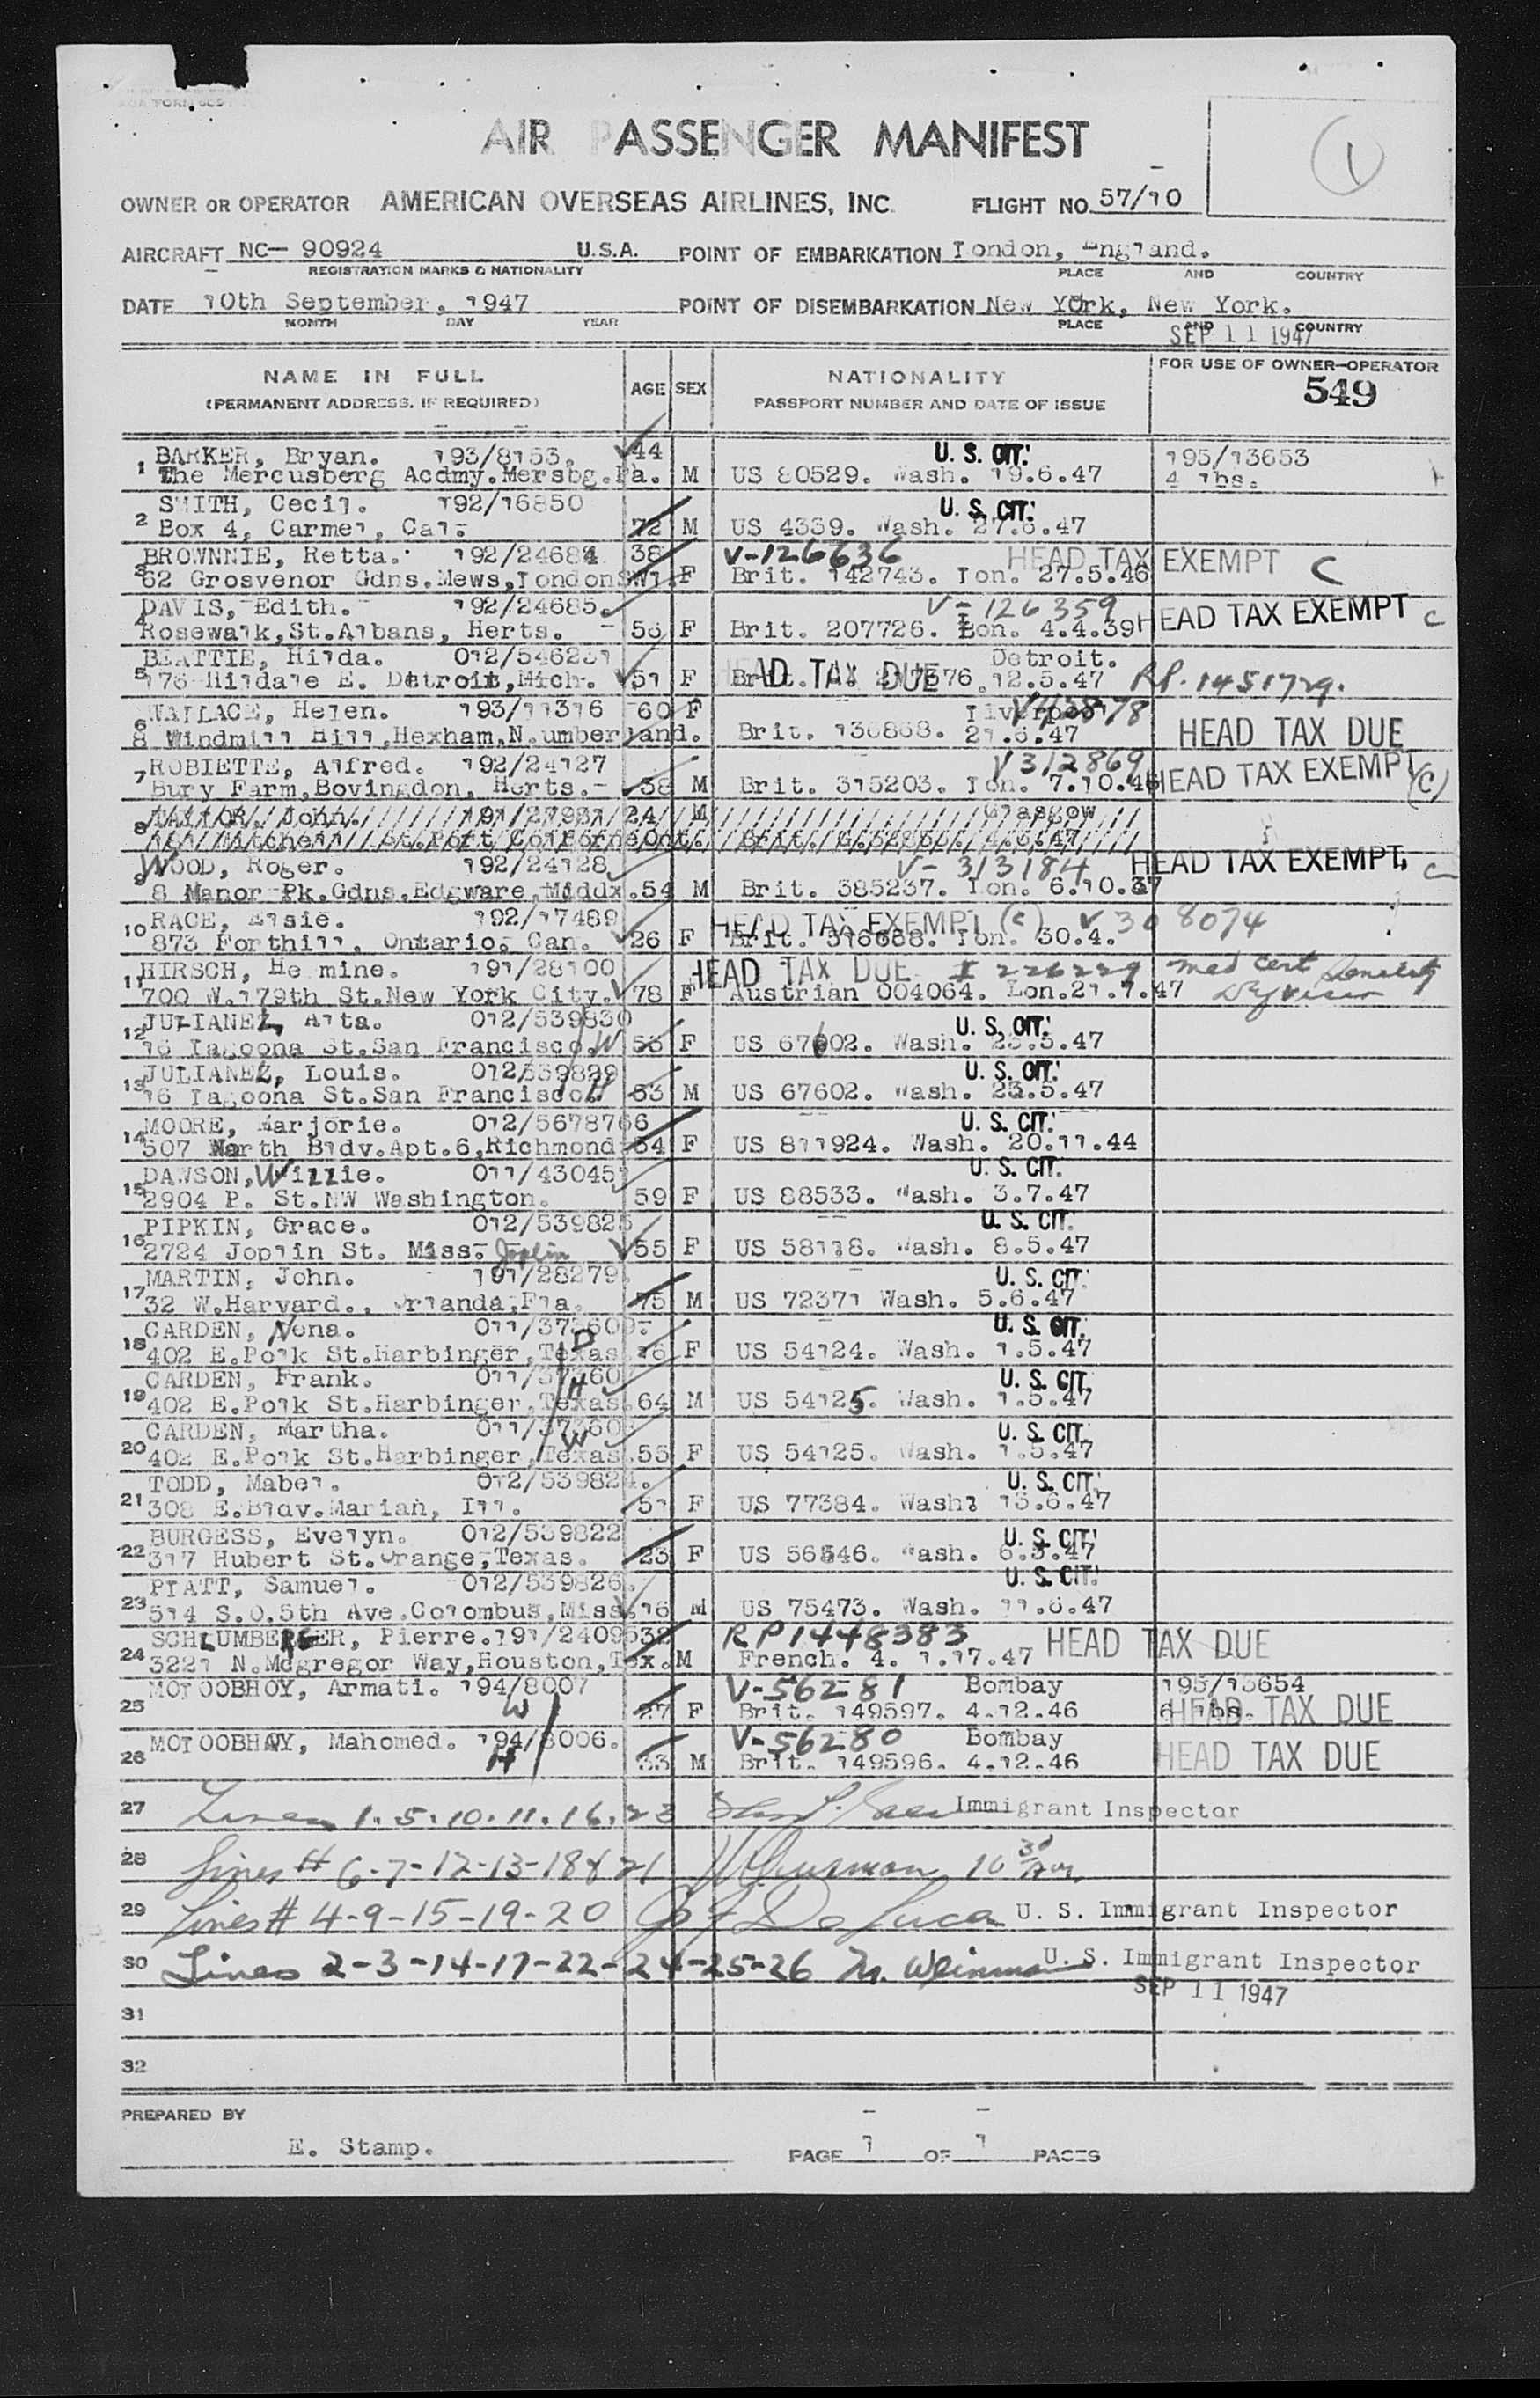 AIR PASSENGER MANIFEST
1
OWNER OR OPERATOR AMERICAN OVERSEAS AIRLINES, INC. FLIGHT NO. 57/10
AIRCRAFT NC— 90924 U.S.A. POINT OF EMBARKATION London, England.
REGISTRATION MARKS & NATIONALITY PLACE AND COUNTRY
DATE 10th September, 1947 POINT OF DISEMBARKATION New York, New York.
MONTH DAY YEAR PLACE AND COUNTRY
SEP 11 1947
NAME IN FULL AGE SEX NATIONALITY FOR USE OF OWNER—OPERATOR
(PERMANENT ADDRESS, IF REQUIRED) PASSPORT NUMBER AND DATE OF ISSUE 549
BARKER, Bryan. 193/8153. 44 U. S. CIT. 195/13653
1 The Mercusberg Acdmy.Mersbg.Pa. M US 80529. Wash. 19.6.47 4 lbs.
SMITH, Cecil. 192/16850 U. S. CIT.
2 Box 4, Carmel, Cal. 72 M US 4339. Wash. 27.6.47
BROWNNIE, Retta. 192/24684 38 V-126636 HEAD TAX EXEMPT C
3 62 Grosvenor Gdns.Mews,London SW1. F Brit. 142743. Lon. 27.5.46
DAVIS, Edith. 192/24685. V-126359 HEAD TAX EXEMPT C
4 Rosewalk,St.Albans, Herts. 56 F Brit. 207726. Lon. 4.4.39
BEATTIE, Hilda. 012/546231 HEAD TAX DUE Detroit.
5 176 Hildale E. Detroit,Mich. 51 F Brit. 12.5.47 RP. 1451729.
WALLACE, Helen. 193/11316 60 F Liverpool
6 8 Windmill Hill,Hexham,N.umberland. Brit. 136868. 21.6.47 HEAD TAX DUE
ROBIETTE, Alfred. 192/24127 V312869 HEAD TAX EXEMPT (C)
7 Bury Farm,Bovingdon, Herts. 38 M Brit. 315203. Lon. 7.10.46
8 John. 24 M Glasgow
WOOD, Roger. 192/24128 V-313184 HEAD TAX EXEMPT, C
9 8 Manor Pk.Gdns.Edgware,Middx. 54 M Brit. 385237. Lon. 6.10.37
RACE, Elsie. 192/17489 HEAD TAX EXEMPT (C) V 308074
10 873 Forthill, Ontario, Can. 26 F Brit. 316688. Lon. 30.4.
HIRSCH, Hermine. 191/28100 HEAD TAX DUE I 226229 Med Cert Senility
11 700 W.179th St.New York City. 78 F Austrian 004064. Lon.21.7.47
JULIANEL, Alta. 012/539830 U. S. CIT.
12 16 Lagoona St.San Francisco. W 53 F US 67602. Wash. 23.5.47
JULIANEL, Louis. 012/539829 U. S. CIT.
13 16 Lagoona St.San Francisco. H 53 M US 67602. Wash. 23.5.47
MOORE, Marjorie. 012/5678766 U. S. CIT.
14 507 North Bldv.Apt.6,Richmond 34 F US 811924. Wash. 20.11.44
DAWSON,Willie. 011/430451 U. S. CIT.
15 2904 P. St.NW Washington. 59 F US 88533. Wash. 3.7.47
PIPKIN, Grace. 012/539825 U. S. CIT.
16 2724 Joplin St. Miss. Joplin 55 F US 58118. Wash. 8.5.47
MARTIN, John. 191/28279. U. S. CIT.
17 32 W.Harvard., Orlanda,Fla. 75 M US 72371 Wash. 5.6.47
CARDEN, Nona. 011/373609. D U. S. CIT.
18 402 E.Polk St.Harbinger,Texas. 16 F US 54124. Wash. 1.5.47
CARDEN, Frank. 011/37360 H U. S. CIT.
19 402 E.Polk St.Harbinger,Texas. 64 M US 54125. Wash. 1.5.47
CARDEN, Martha. 011/37360 W U. S. CIT.
20 402 E.Polk St.Harbinger,Texas. 55 F US 54125. Wash. 1.5.47
TODD, Mabel. 012/539824. U. S. CIT.
21 308 E.Bldv.Mariah, Ill. 51 F US 77384. Wash. 13.6.47
BURGESS, Evelyn. 012/539822 U. S. CIT.
22 317 Hubert St.Orange,Texas. 23 F US 56546. Wash. 6.5.47
PLATT, Samuel. 012/539826. U. S. CIT.
23 514 S.O.5th Ave.Colombus,Miss. 76 M US 75473. Wash. 11.6.47
SCHLUMBERGER, Pierre. 191/24095 32 RP1448383 HEAD TAX DUE
24 3221 N.Mcgregor Way,Houston,Tex. M French. 4. 1.17.47
MOLOOBHOY, Armati. 194/8007 V-56281 Bombay 195/13654
25 W 27 F Brit. 149597. 4.12.46 6 lbs. HEAD TAX DUE
MOLOOBHOY, Mahomed. 194/8006. V-56280 Bombay
26 H 33 M Brit. 149596. 4.12.46 HEAD TAX DUE
27 Lines 1.5.10.11.16.23 Immigrant Inspector
28 Lines # 6-7-12-13-18 & 21
29 Lines # 4-9-15-19-20 De Luca U. S. Immigrant Inspector
30 Lines 2-3-14-17-22-24-25-26 M. Weinman U. S. Immigrant Inspector
SEP 11 1947
31
32
PREPARED BY
E. Stamp. PAGE 1 OF 1 PAGES